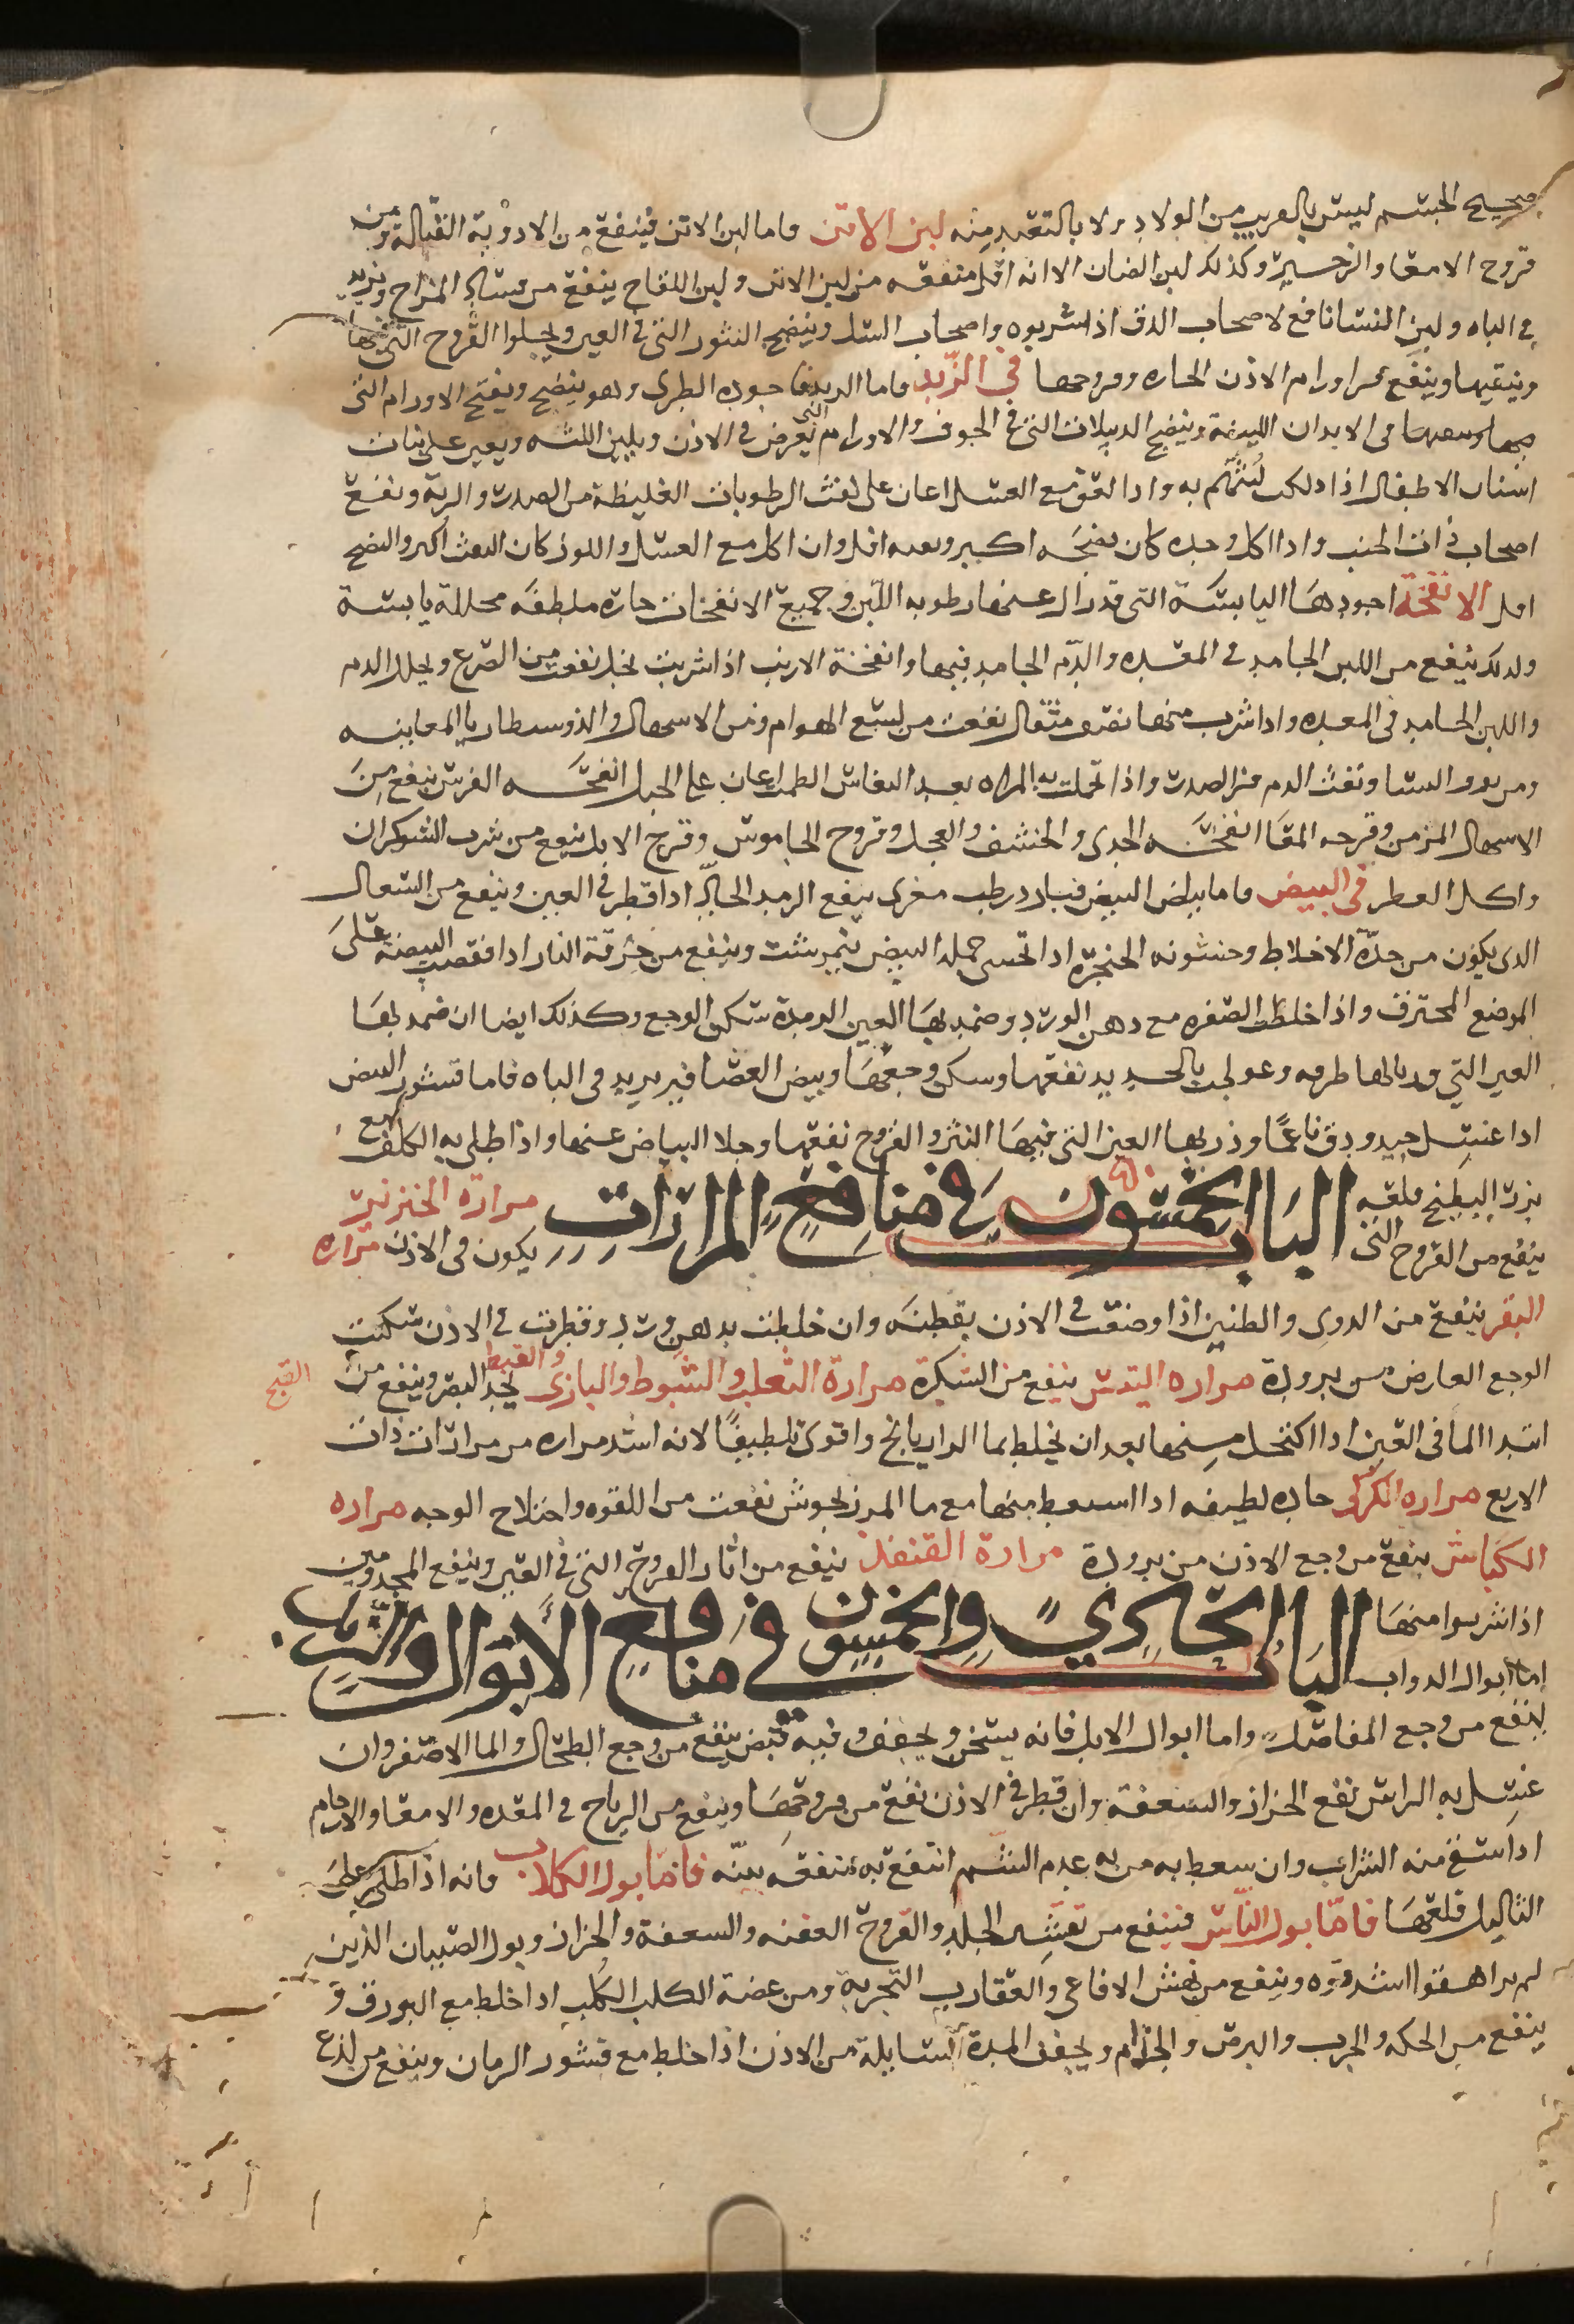 صحيح الجسم ليس بالقريب من الولاد ولا بالتبعيد منه لبن الاتن واما لبن الاتن فينفع من الادوية القتالة ومن
قروح الامعا والزحير وكذلك لبن الضان الا انه اقل منفعه من لبن الاتن ولبن اللقاح ينفع من فساد المزاج ويزيد
في الباه ولبن النسا نافع لاصحاب الدق اذا شربوه واصحاب السل وينضج البثور التي في العين ويجلوا القروح التي فيها
وينقيها وينفع من اورام الاذن الحاره وقروحها في الزبد فاما الزبد فاجوده الطري وهو ينضج ويفتح الاورام التي
في الابدان اللينة وينضج الدبيلات التي في الجوف والاورام التي تعرض في الاذن ويلين اللثه ويعين على نبات
اسنان الاطفال اذا دلكت لثتهم به واذا لعق مع العسل اعان على نفث الرطوبات الغليظة من الصدر والرية ونفع
اصحاب ذات الجنب واذا اكل وحده كان نضجه اكثر ونفثه اقل وان اكل مع العسل واللوز كان النفث اكثر والنضج
اقل الانفحة اجودها اليابسة التي قد زال عنها رطوبه اللبن وجميع الانفحات حاره ملطفه محللة يابسة
ولذلك ينفع من اللبن الجامد في المعده والدم الجامد فيها وانفحة الارنب اذا شربت بخل نفعت من الصرع ويحلل الدم
واللبن الجامد في المعده واذا شرب منها نصف مثقال نفعت من لسع الهوام ومن الاسهال والذوسنطاريا المعاييه
ومن نزف النسا ونفث الدم من الصدر واذا تحملت به المراه بعد النفاس الطمث اعان على الحبل انفحه الفرس ينفع من
الاسهال المزمن وقرحه المعا انفحه الجدي والخشف والعجل وقروح الجاموس وقرح الابل ينفع من شرب الشوكران
واكل الفطر في البيض فاما بياض البيض فبارد رطب مغري ينفع الرمد الحار اذا قطر في العين وينفع من السعال
الذي يكون من حدة الاخلاط وخشونه الحنجرة اذا تحسى جمله البيض نيمرشت وينفع من حرقة النار اذا فقصت البيضة على
الموضع المحترق واذا خلطت الصفره مع دهن الورد وضمد بها العين الرمدة سكن الوجع وكذلك ايضا ان ضمد بها
العين التي قد نالها طرفه وعولجت بالحديد نفعتها وسكن وجعها وبيض العصافير يزيد في الباه فاما قشور البيض
اذا غسل جيد ودق ناعمًا وذر بها العين التي فيها البثر والقروح نفعتها وجلا البياض عنها واذا طلي به الكلف مع
بزر البطيخ قلعه الباب الخمسون في منافع المرارات مرارة الخنزير
ينفع من القروح التي يكون في الاذن مراره
البقر ينفع من الدوي والطنين اذا وضعت في الاذن بقطنه وان خلطت بدهن ورد وقطرت في الاذن سكنت
الوجع العارض من برودة مراره التيس ينفع من الشبكرة مرارة الثعلب والشبوط والبازي والقبط يحد البصر وينفع من القبج
ابتدا الما في العين اذا اكتحل منها بعد ان يخلط بما الرازيانج واقوى تلطيفًا لانه اشد مراره من مرارات ذات
الاربع مراره الكركي حاده لطيفه اذا استعط منها مع ما المرزنجوش نفعت من اللقوه واختلاج الوجه مراره
الكباش ينفع من وجع الاذن من برودة مرارة القنفذ ينفع من اثار القروح التي في العين وينفع المجذومين
اذا شربوا منها الباب الحادي والخمسون في منافع الابوال والزبل
اما ابوال الدواب
ينفع من وجع المفاصل واما ابوال الابل فانه يسخن ويجفف وفيه قبض ينفع من وجع الطحال والما الاصفر وان
غسل به الراس نفع الحزاز والسعفة وان قطر في الاذن نفع من قروحها وينفع من الرياح في المعده والامعا والارحام
اذا سقي منه الشراب وان سعط به من به عدم الشم انتفع به منفعه بينه فاما بول الكلاب فانه اذا طلي على
الثاليل قلعها فاما بول الناس فينفع من تقشر الجلد والقروح العفنه والسعفة والحزاز وبول الصبيان الذين
لم يراهقوا اشد قوه وينفع من نهش الافاعي والعقارب التجربة ومن عضة الكلب الكلب اذا خلط مع البورق و
ينفع من الحكه والجرب والبرص والجذام ويجفف المدة السايلة من الاذن اذا خلط مع قشور الرمان وينفع من لذع